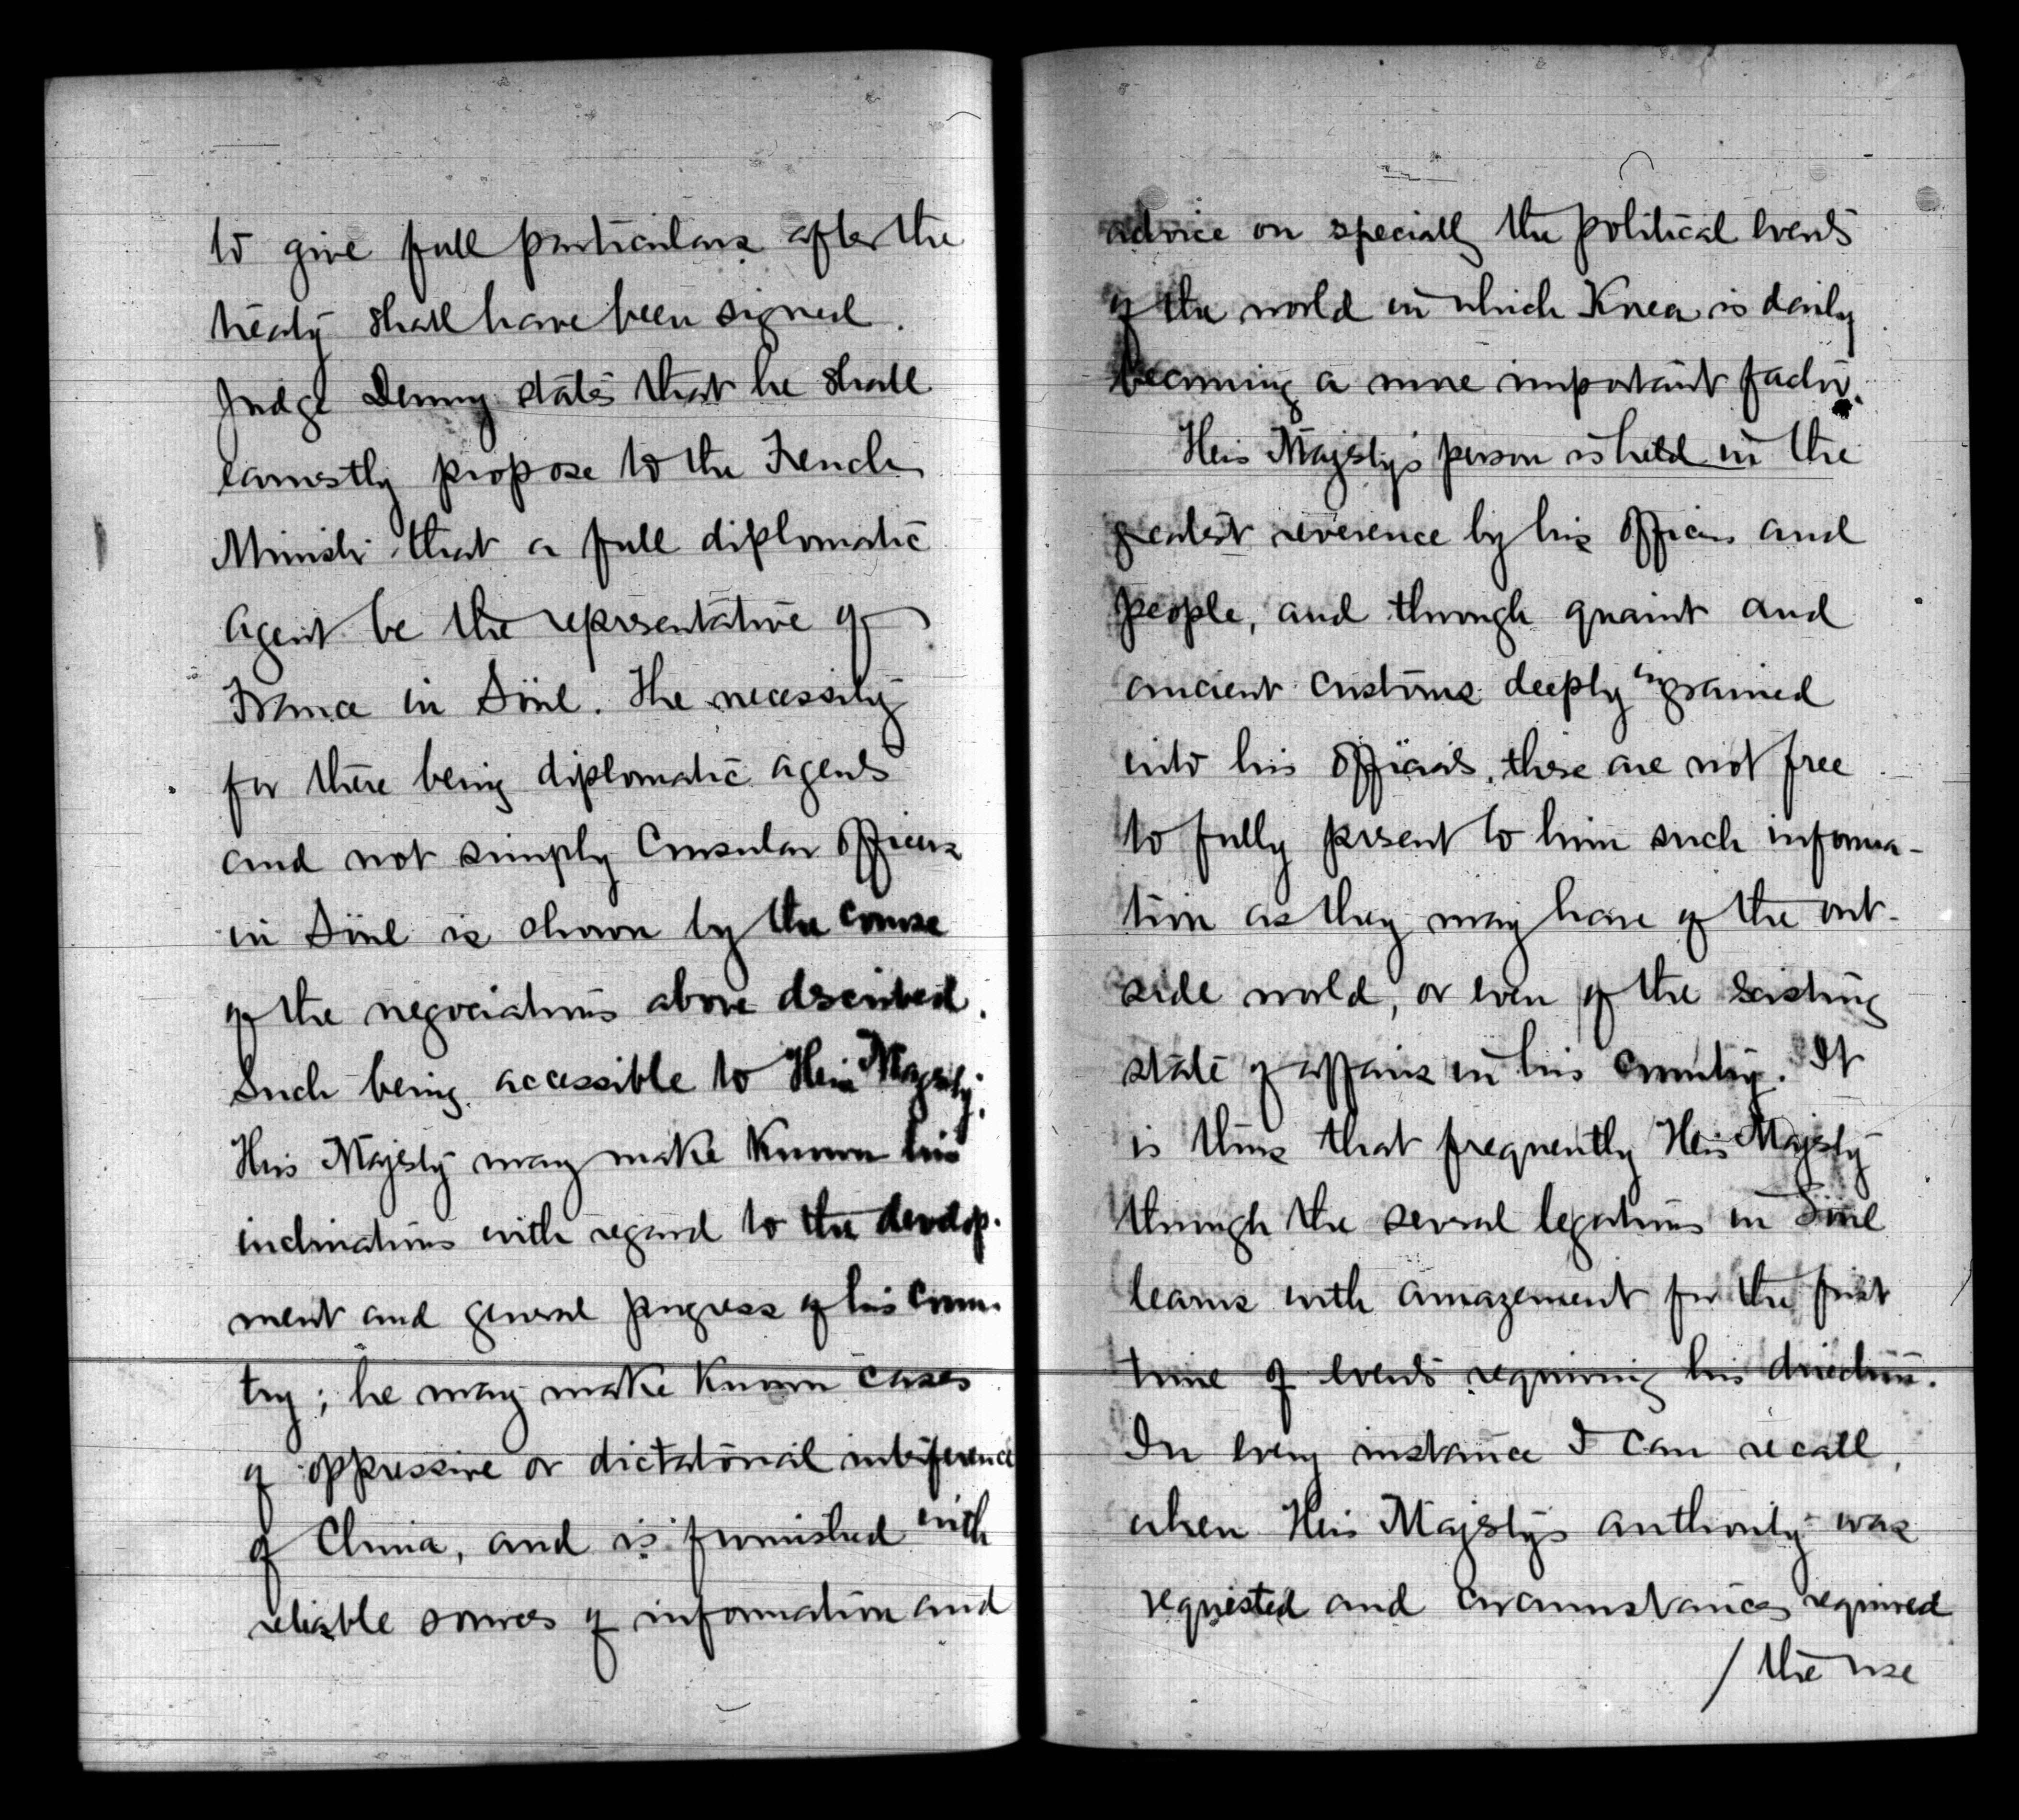 to give full particulars after the
treaty shall have been signed.
Judge Denny states that he shall
earnestly propose to the French
Minister that a full diplomatic
Agent be the representative of
France in Söul. The necessity
for there being diplomatic agents
and not simply Consular Officers
in Söul is shown by the course
of the negociations above described.
Such being accessible to His Majesty;
His Majesty may make known his
inclinations with regard to the develop-
ment and general progress of his coun-
try; he may make known cases
of oppressive or dictatorial interference
of China, and is furnished with
reliable sources of information and
advice on specially the political events
of the world in which Korea is daily
becoming a more important factor.
His Majesty's person is held in the
greatest reverence by his officers and
people, and through quaint and
ancient customs deeply ingrained
into his officials, these are not free
to fully present to him such informa-
tion as they may have of the out-
side world, or even of the existing
state of affairs in his country. It
is thus that frequently His Majesty
through the several legations in Söul
learns with amazement for the first
time of events requiring his direction.
In every instance I can recall,
when His Majesty's authority was
requested and circumstances required
/ the use